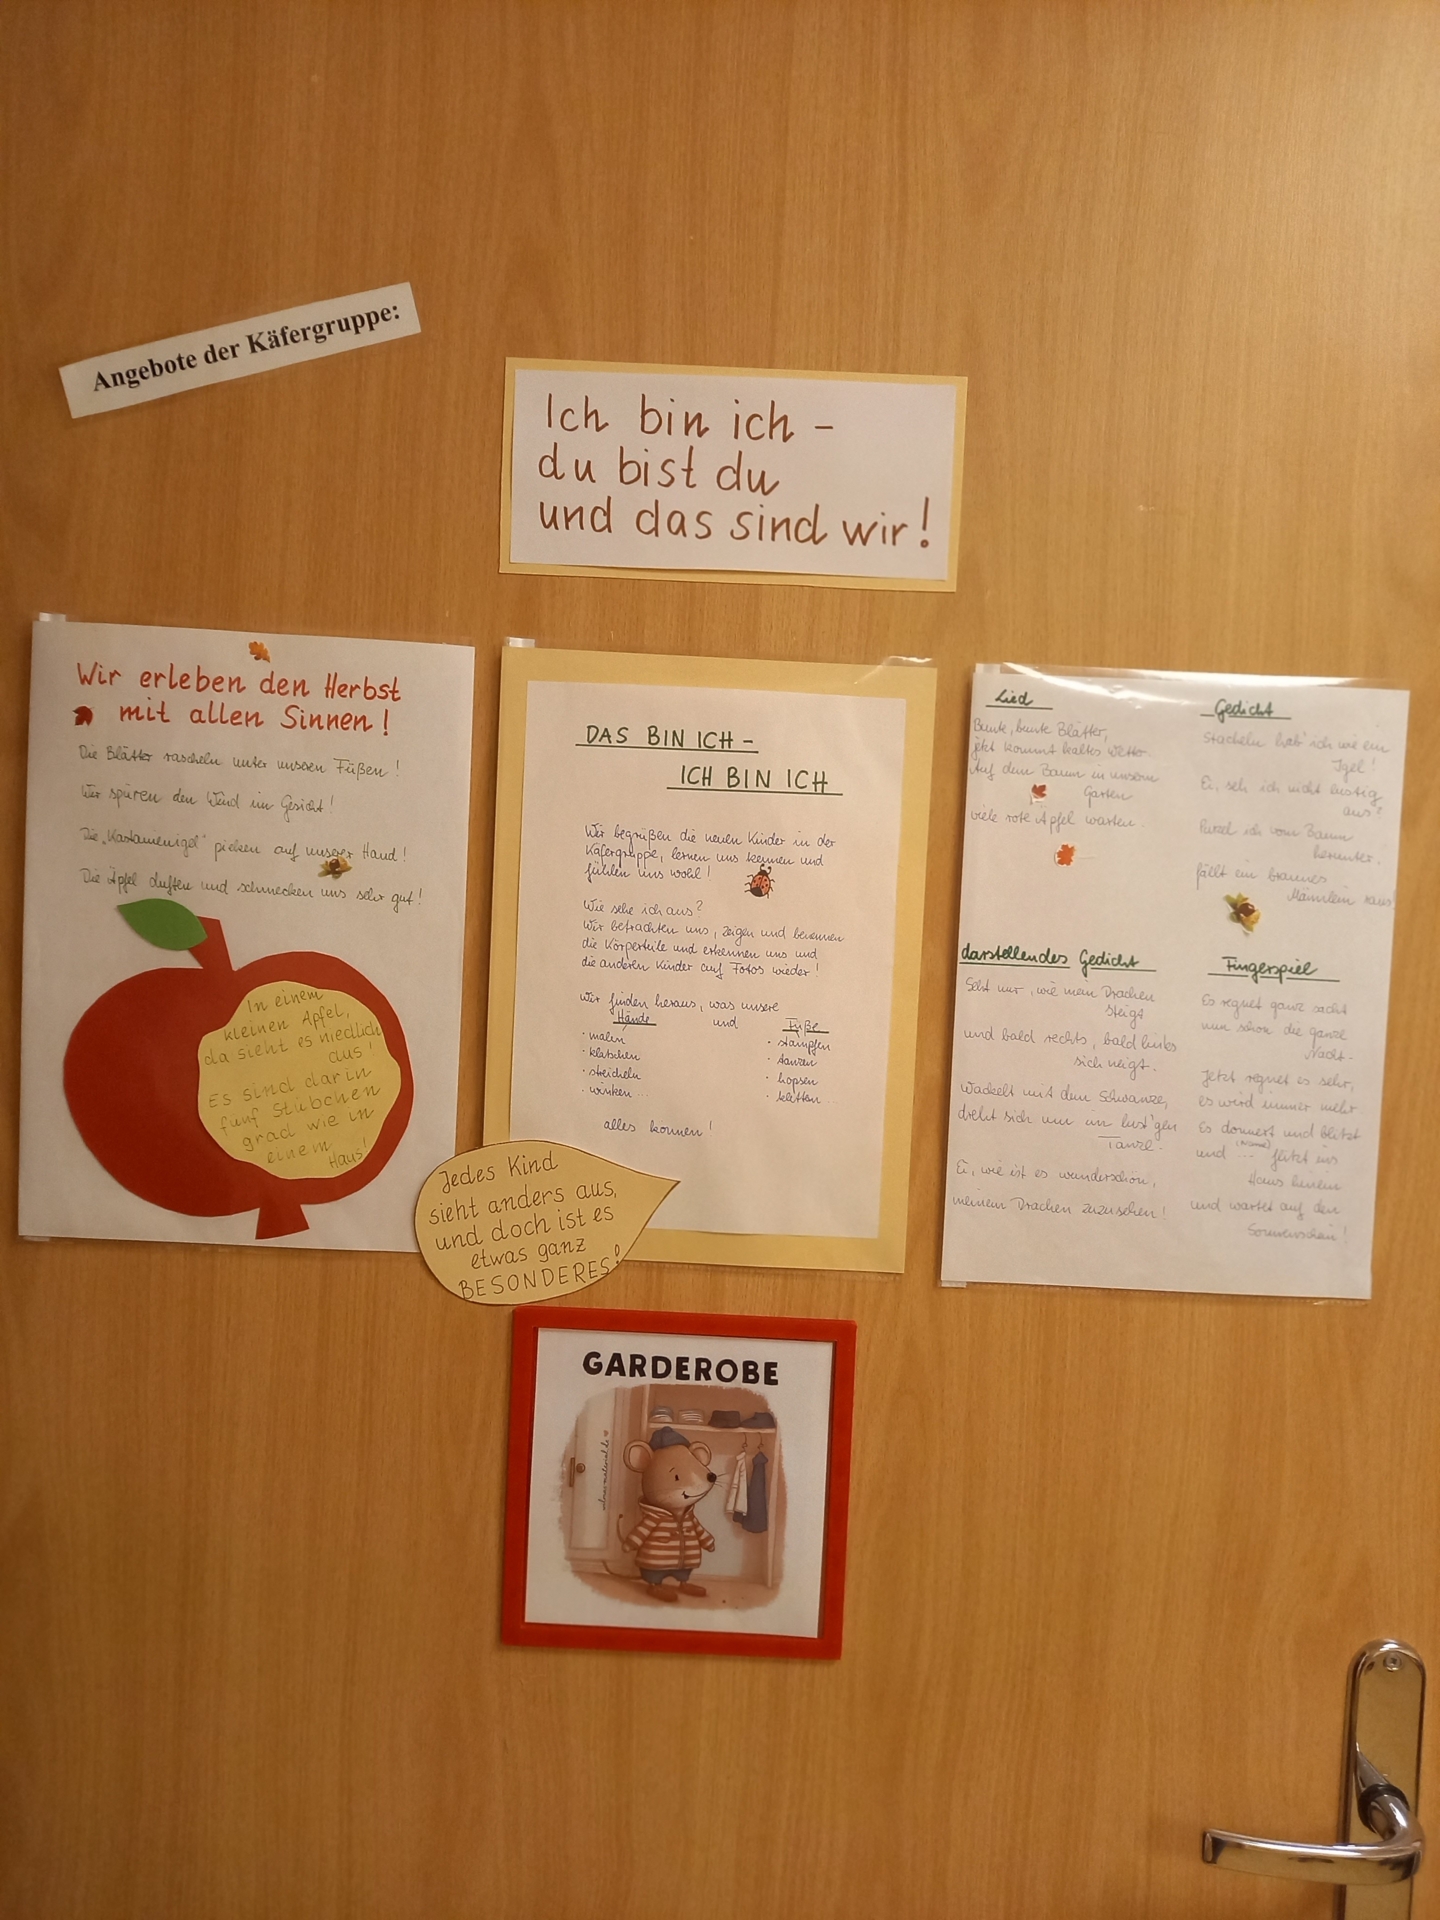 Angebote der Käfergruppe:
Ich bin ich -
du bist du
und das sind wir!
Wir erleben den Herbst
mit allen Sinnen!
Die Blätter rascheln unter unseren Füßen!
Wir spüren den Wind im Gesicht!
Die „Kastanienigel" pieken auf unserer Hand!
Die Äpfel duften und schmecken uns sehr gut!
In einem
kleinen Apfel,
da sieht es niedlich
aus!
Es sind darin
fünf Stübchen
grad wie in
einem
Haus!
DAS BIN ICH -
ICH BIN ICH
Wir begrüßen die neuen Kinder in der
Käfergruppe, lernen uns kennen und
fühlen uns wohl!
Wie sehe ich aus?
Wir betrachten uns, zeigen und benennen
die Körperteile und erkennen uns und
die anderen Kinder auf Fotos wieder!
Wir finden heraus, was unsere
Hände und Füße
· malen
· klatschen
· streicheln
· winken ...
· stampfen
· tanzen
· hopsen
· klettern ...
alles können!
Jedes Kind
sieht anders aus,
und doch ist es
etwas ganz
BESONDERES!
Lied
Bunte, bunte Blätter,
jetzt kommt kaltes Wetter.
Auf dem Baum in unserm
Garten
viele rote Äpfel warten.
Gedicht
Stacheln hab' ich wie ein
Igel!
Ei, seh ich nicht lustig
aus?
Purzel ich vom Baum
herunter,
fällt ein braunes
Männlein raus!
darstellendes Gedicht
Seht nur, wie mein Drachen
steigt
und bald rechts, bald links
sich neigt.
Wackelt mit dem Schwanze,
dreht sich um im lust'gen
Tanze.
Ei, wie ist es wunderschön,
meinem Drachen zuzusehen!
Fingerspiel
Es regnet ganz sacht
nun schon die ganze
Nacht.
Jetzt regnet es sehr,
es wird immer mehr.
Es donnert und blitzt
(Name)
und ... flitzt ins
Haus hinein
und wartet auf den
Sonnenschein!
GARDEROBE